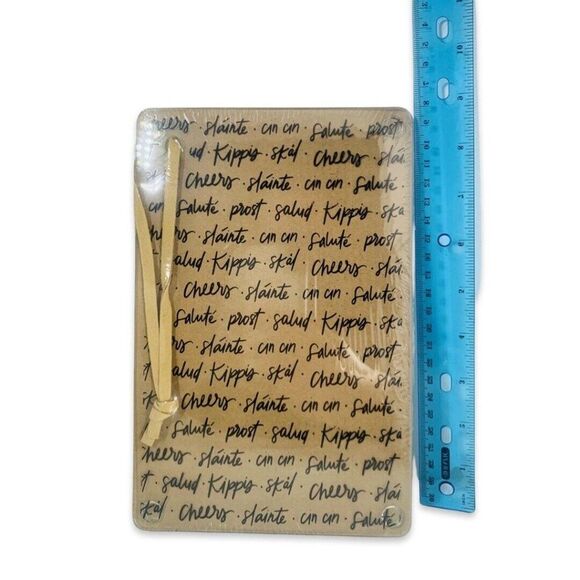 Cheers · sláinte · cin cin · saluté · prost
ud · Kippis · skál · Cheers · slái
Cheers · sláinte · cin cin · saluté
cin · saluté · prost · salud · Kippis · ska
Cheers · sláinte · cin cin · saluté · prost
salud · Kippis · skál · Cheers · slái
Cheers · sláinte · cin cin · saluté
saluté · prost · salud · Kippis · ska
sláinte · cin cin · saluté · prost
t · salud · Kippis · skál · Cheers · slái
Cheers · sláinte · cin cin · saluté
saluté · prost · salud · Kippis · ska
heers · sláinte · cin cin · saluté · prost
t · salud · Kippis · skál · Cheers · slái
skál · Cheers · sláinte · cin cin · saluté